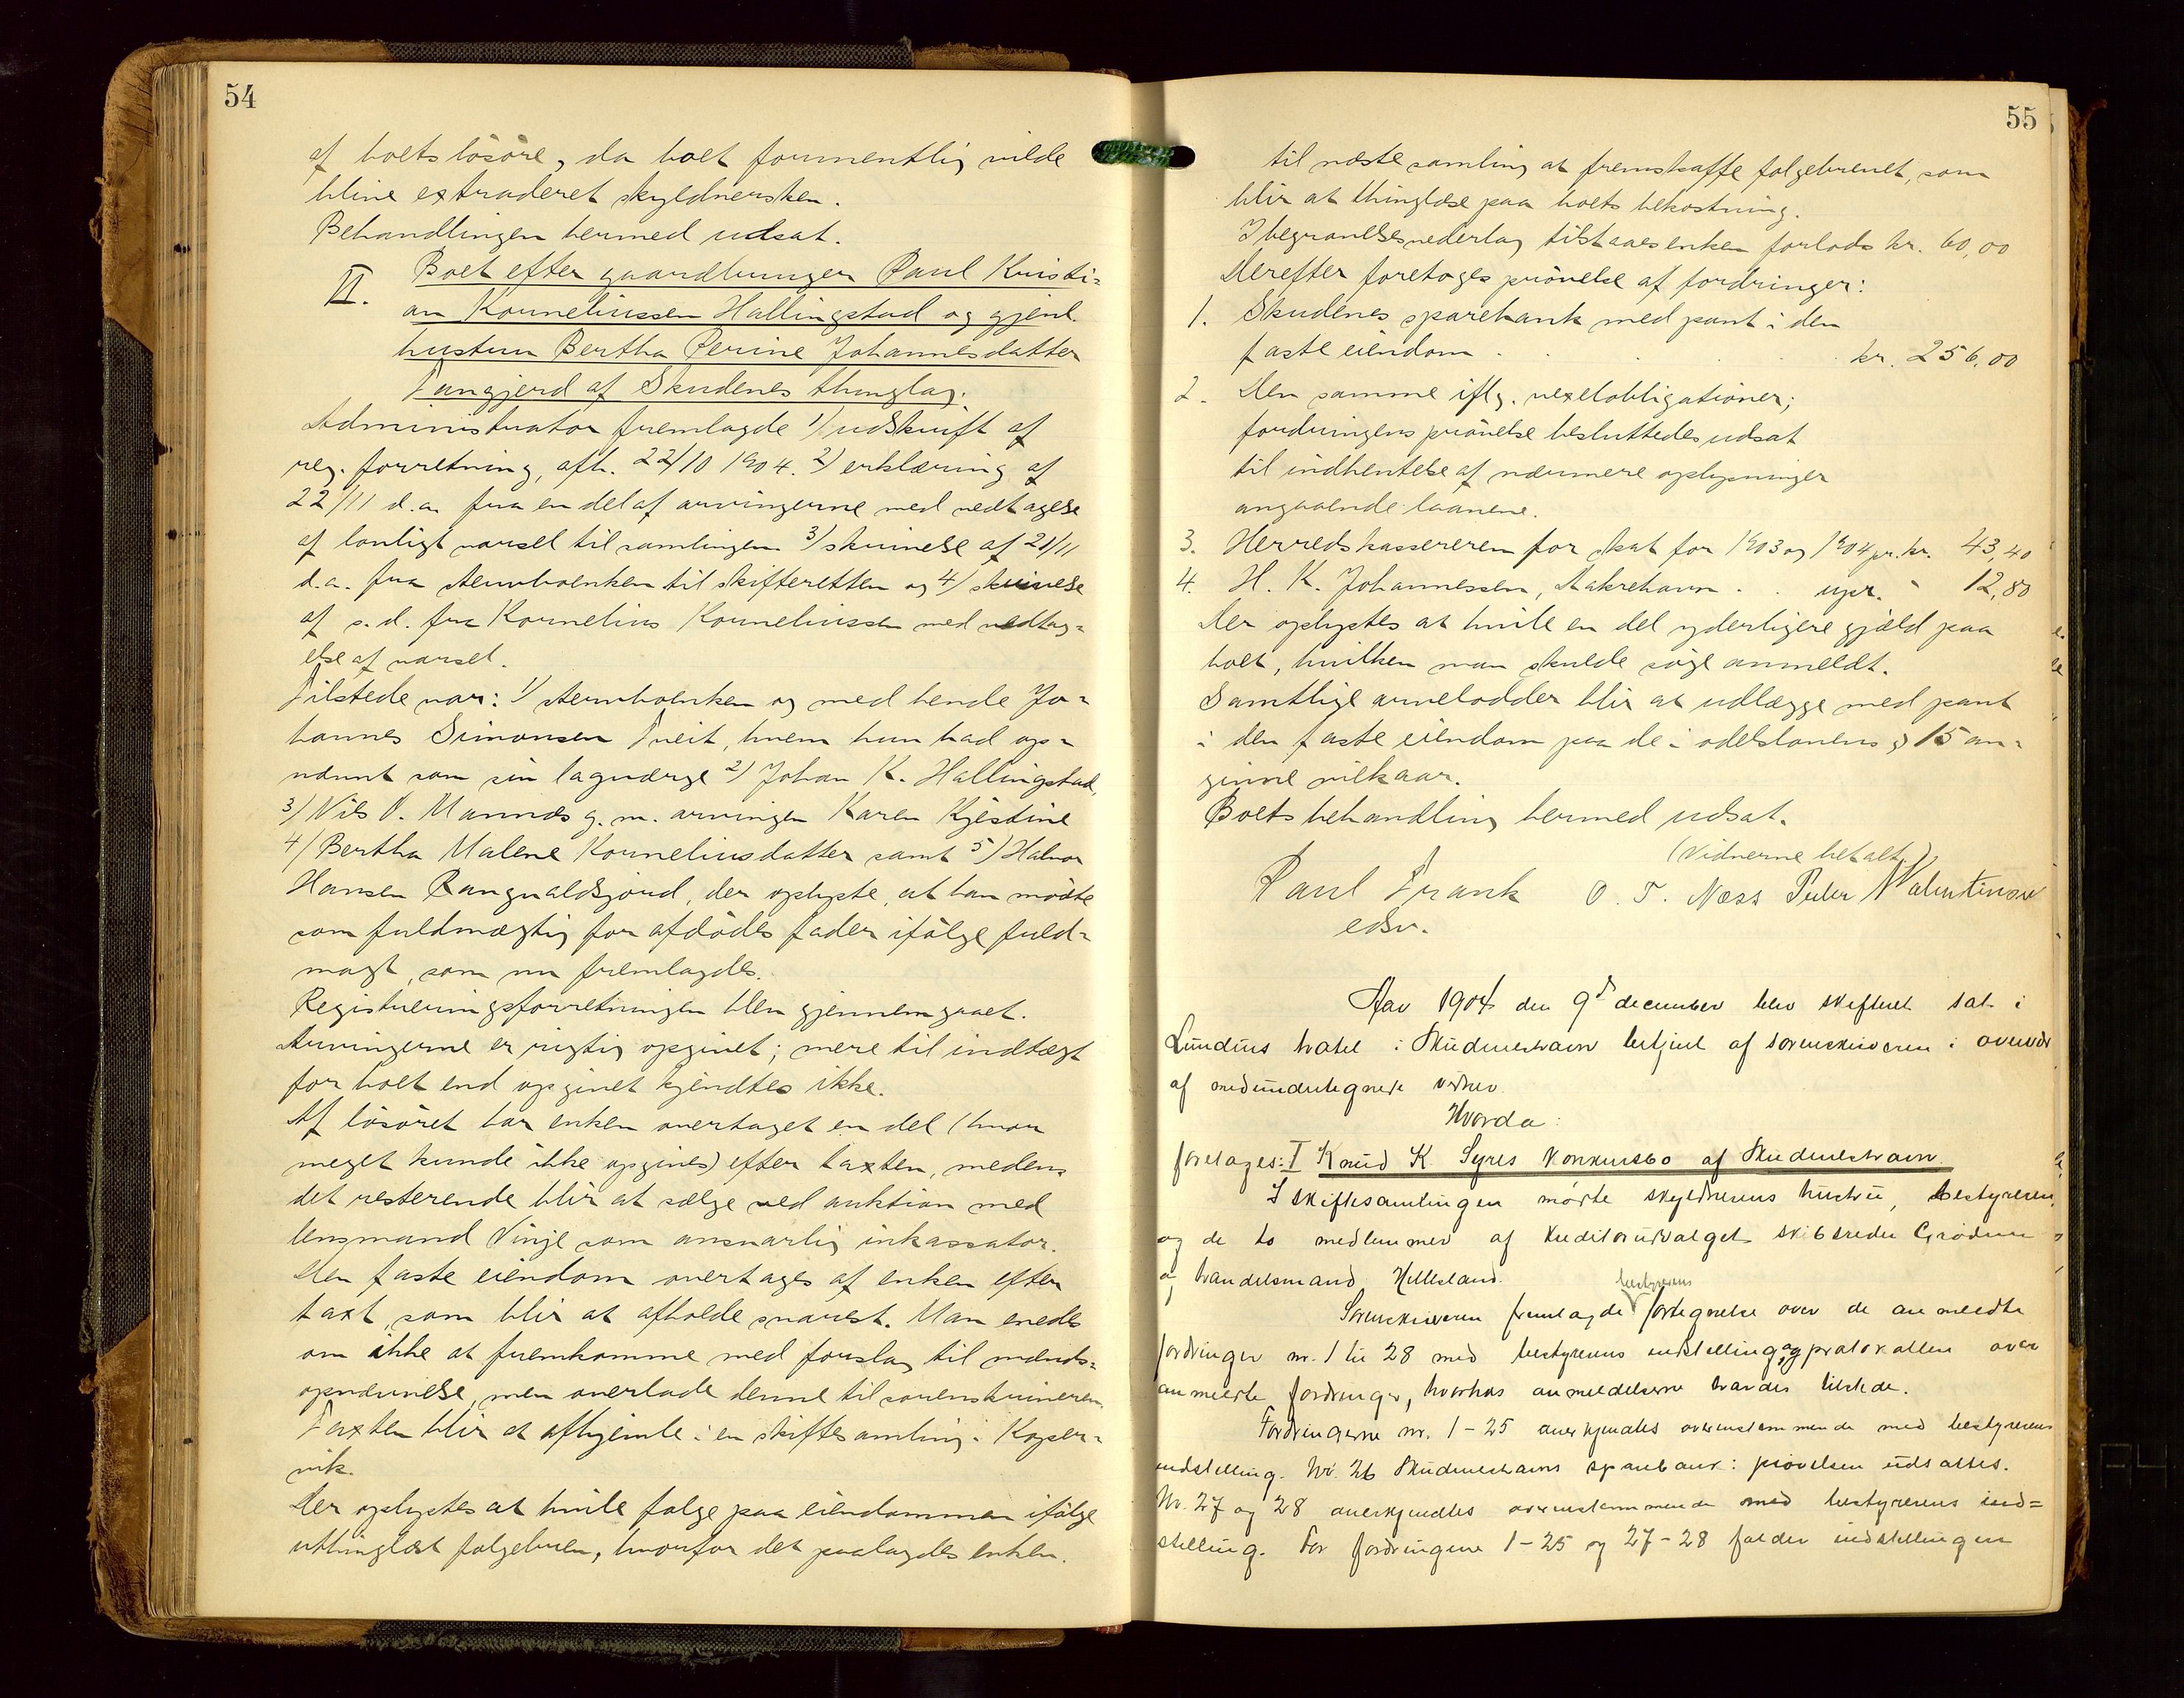 54
af boets lösöre, da boet formentlig vilde
blive extraderet skyldnersken.
Behandlingen hermed udsat.
II. Boet efter gaardbruger Paul Kristi-
an Korneliussen Hallingstad og gjenl.
hustru Bertha Perine Johannesdatter
Tangjerd af Skudenes thinglag.
Administrator fremlagde 1) udskrift af
reg. forretning, afh. 22/10 1904. 2) erklæring af
22/11 d.a. fra en del af arvingerne med vedtagelse
af lovligt varsel til samlingen 3) skrivelse af 21/11
d.a. fra stervboenken til skifteretten og 4) skrivelse
af s.d. fra Kornelius Korneliussen med vedtag-
else af varsel.
Tilstede var: 1) stervboenken og med hende Jo-
hannes Simonsen Tveit, hvem hun had op-
nævnt som sin lagværge 2) Johan K. Hallingstad,
3) Nils O. Mannes g.m. arvingen Karen Kjistine
4) Bertha Malene Korneliusdatter samt 5) Halvor
Hansen Rangvaldsjord, der oplyste, at han mödte
som fuldmægtig for afdödes fader ifölge fuld-
magt, som nu fremlagdes.
Registreringsforretningen blev gjennemgaaet.
Arvingerne er rigtig opgivet; mere til indtægt
for boet end opgivet kjendtes ikke.
Af lösöret har enken overtaget en del (hvor
meget kunde ikke opgives) efter taxten, medens
det resterende blir at sælge ved auktion med
lensmand Vinje som ansvarlig inkassator.
Den faste eiendom overtages af enken efter
taxt, som blir at afholde snarest. Man enedes
om ikke at fremkomme med forslag til mænds-
opnævnelse, men overlade denne til sorenskriveren.
Taxten blir at afhjemle i en skiftesamling i Koper-
vik.
Der oplystes at hvile folge paa eiendommen ifölge
uthinglæst folgebrev, hvorfor det paalagdes enken
55
til næste samling at fremskaffe folgebrevet, som
blir at thinglæse paa boets bekostning.
I begravelsesvederlag tilstaaes enken forlods kr. 60,00
Derefter foretoges prövelse af fordringer:
1. Skudenes sparebank med pant i den
faste eiendom . . . . kr. 256,00
2. Den samme iflg. vexelobligationer;
fordringens prövelse besluttedes udsat
til indhentelse af nærmere oplysninger
angaaende laanene.
3. Herredskassereren for skat for 1903 og 1904 pr. kr. 43,40
4. H. K. Johannessen, Aakrehavn . . upr. " 12,80
Der oplystes at hvile en del yderligere gjæld paa
boet, hvilken man skulde söge anmeldt.
Samtlige arvelodder blir at udlægge med pant
i den faste eiendom paa de i odelslovens § 15 an-
givne vilkaar.
Boets behandling hermed udsat.
(Vidnerne betalt)
Paul Frank O. T. Næss Peder Valentinsen
edsv.
Aar 1904 den 9d december blev skifteret sat i
Lundins hotel i Skudeneshavn betjent af sorenskriveren i overvær
af medundertegnede vidner.
Hvorda:
foretoges: I Knud K. Syres konkursbo af Skudeneshavn.
I skiftesamlingen mødte skyldnerens hustru, bestyreren
og de to medlemmer af kreditorudvalget skibsreder Grødem
og handelsmand Hillesland.
Sorenskriveren fremlagde bestyrerens fortegnelse over de anmeldte
fordringer nr. 1 til 28 med bestyrerens indstilling og protokollen over
anmeldte fordringer, hvorhos anmeldelserne havdes tilstede.
Fordringerne nr. 1-25 anerkjendtes overensstemmende med bestyrerens
indstilling. Nr. 26 Skudeneshavns sparebank: prøvelsen udsattes.
Nr. 27 og 28 anerkjendtes overensstemmende med bestyrerens ind=
stilling. For fordringerne 1-25 og 27-28 falder indstillingen